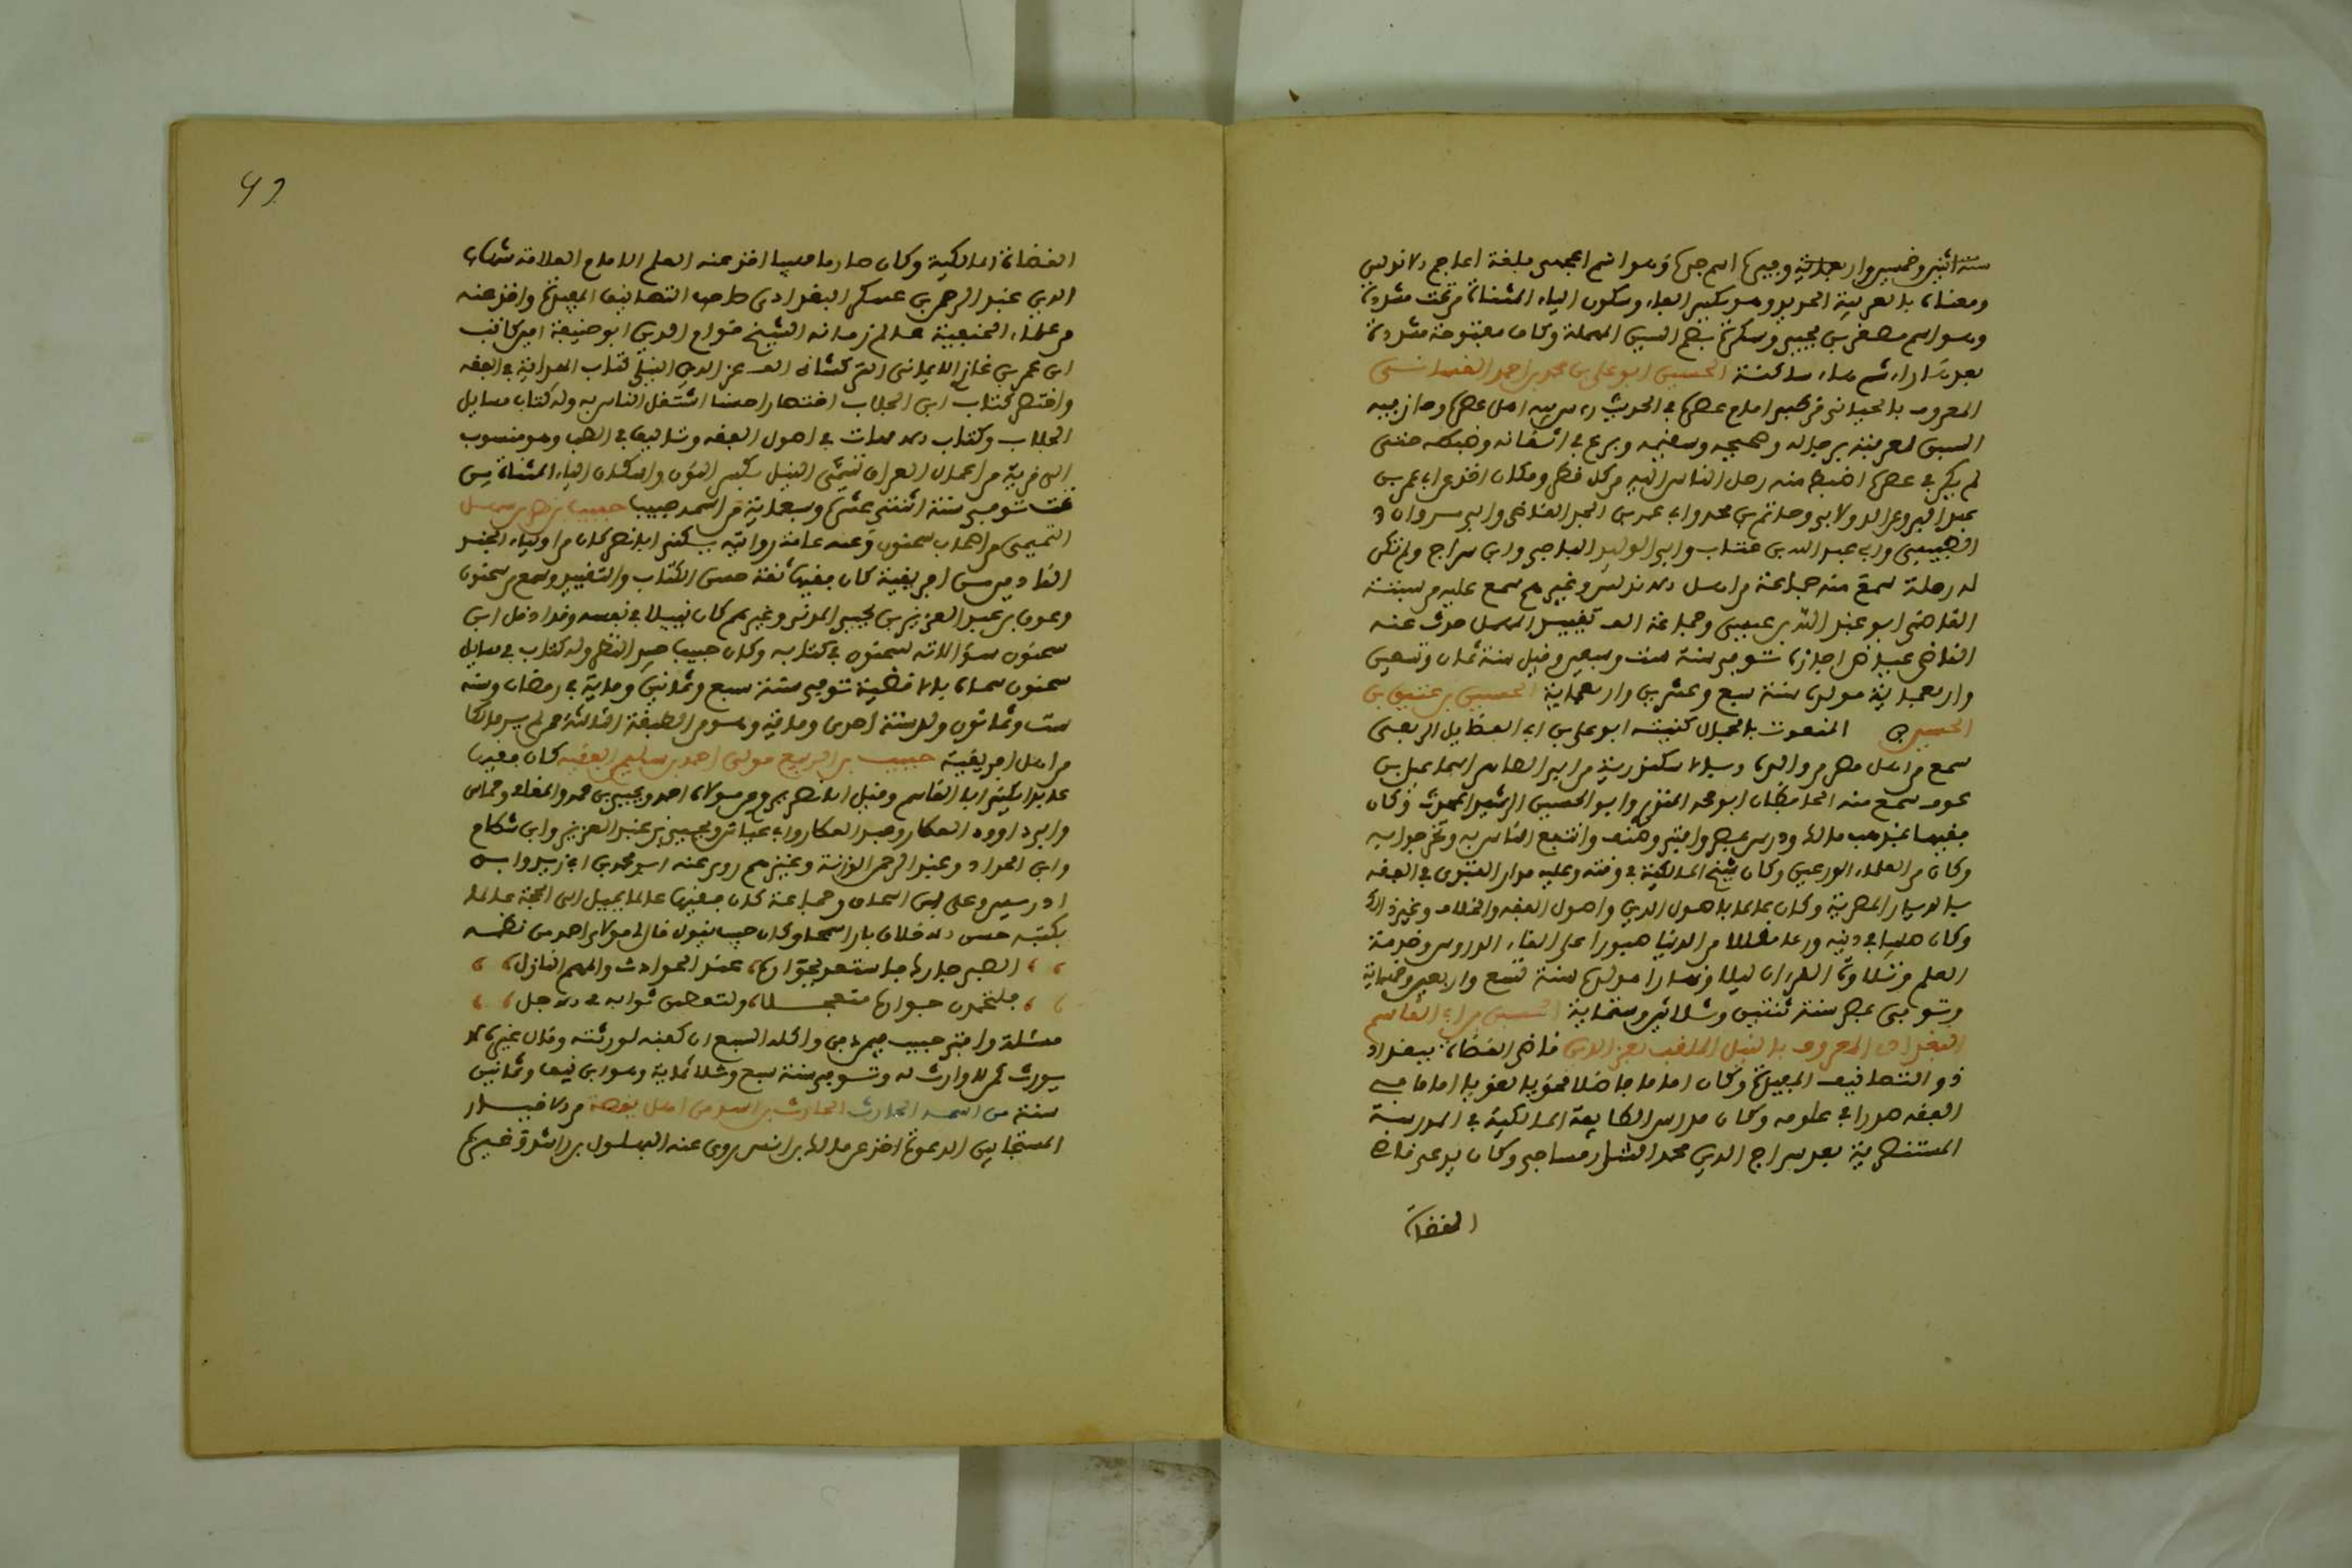 سنة اثنين وخمسين واربعماية وجيرها اسم جرها وهو اسم اعجمي بلغة اعاجم الاندلس
ومعناه بالعربية الحديد وهو بكسر الفاء وسكون الياء المثناة من تحت مشددة
وهو اسم مصغر بن يحيى وسكرة بضم السين المهملة وكاف مفتوحة مشددة
بعدها راء ثم هاء ساكنة الحسين ابو علي بن محمد بن احمد الغساني
المعروف بالجياني قرطبي امام عصره في الحديث اهل عصره
لمعرفته برجاله وصحيحه وسقيمه وبرع في اتقانه وضبطه حتى
لم يكن في عصره اضبط منه رحل الناس اليه من كل قطر ومكان اخذ عن ابي عمر بن
عبد البر وعن الدولابي وحاتم بن محمد وابي عمر بن الحذا القاضي وابي مروان
وابي عبد الله بن عتاب وابي الوليد الباجي وابن سراج ولم تكن
له رحلة سمع منه جماعة من اهل الاندلس وغيرهم سمع عليه من سبتة
القاضي ابو عبد الله بن عيسى وجماعة حدث عنه
القاضي عياض اجازة توفي سنة ست وسبعين وقيل سنة ثمان وتسعين
واربعماية مولده سنة سبع وعشرين واربعماية الحسين بن عتيق بن
الحسين المنعوت بالجمال كنيته ابو علي بن ابي الفضايل الربعي
سمع من اهل مصر من والده وبالاسكندرية من ابي الطاهر اسماعيل بن
عوف سمع منه الحافظان ابو محمد المنذري وابو الحسين الرشيد المحدث وكان
فقيها بمذهب مالك ودرس بمصر وافتى وصنف وانتفع الناس به وتخرجوا به
وكان من العلماء الورعين وكان شيخ المالكية في وقته وعليه مدار الفتوى في الفقه
بالديار المصرية وكان عالما باصول الدين واصول الفقه والخلاف وغير ذلك
وكان صلبا في دينه ورعا متقللا من الدنيا صبورا على القاء الدروس وخدمة
العلم وتلاوة القران ليلا ونهارا مولده سنة تسع واربعين وخمسماية
وتوفي بمصر سنة ثنتين وثلاثين وستماية الحسين بن ابي القاسم
البغدادي المعروف بالنيلي الملقب بعز الدين قاضي القضاة ببغداد
ذو التصانيف المفيدة وكان اماما فاضلا نحويا لغويا اماما في
الفقه صدرا في علومه وكان مدرس الطائفة المالكية في المدرسة
المستنصرية بعد سراج الدين محمد الشارمساحي وكان يدعى قاضي
القضاة
القضاة المالكية وكان صارما مهيبا اخذ عنه العلم الامام العلامة شهاب
الدين عبد الرحمن بن عسكر البغدادي صاحب التصانيف المفيدة واخذ عنه
من علماء الحنفية عالم زمانه الشيخ قوام الدين ابو حنيفة امير كاتب
ابن عمر بن غازي عز الدين النيلي كتاب الهداية في الفقه
واختصر كتاب ابن الجلاب اختصارا حسنا اشتغل الناس به وله كتاب مسايل
الخلاف وكتاب في اصول الفقه وتاليف في الطب وهو منسوب
الى قرية من اعمال العراق تسمى النيل بكسر النون واسكان الياء المثناة من
تحت توفي سنة اثنتي عشرة وسبعماية من اسمه حبيب حبيب بن نصر بن سهل
التميمي من اصحاب سحنون وعنه عامة روايته يكنى ابا نصر كان من ابناء الجند
القادمين افريقية كان فقيها ثقة حسن الكتاب والتقييد سمع من سحنون
وعون بن عبد العزيز بن يحيى المدني وغيرهم كان نبيلا في نفسه وقد ادخل ابن
سحنون سؤالاته لسحنون في كتابه وكان حبيب جيد النظر وله كتاب في مسايل
سحنون سماه بالاقضية توفي سنة سبع وثمانين ومايتين في رمضان وسنه
ست وثمانون ولد سنة احدى ومايتين وهو من الطبقة الثالثة ممن لم ير مالكا
من اهل افريقية حبيب بن الربيع مولى احمد بن سليمن الفقيه كان فقيها
عابدا يكنى ابا القاسم وقيل ابا نصر يروي عن مولاه احمد ويحيى بن عمر والمغامي وحماس
وابي داوود العطار وعبد الجبار وابي عياش ويحيى بن عبد العزيز وابن بسطام
وابن الحداد وعبد الرحمن الوزنة وغيرهم روى عنه ابو محمد بن ابي زيد وابن
ادريس وعلي بن اسحاق وجماعة كان فقيها عالما يميل الى الحجة عالما
بكتبه حسن الاخلاق بارا سمحا وكان حبيب يقول قال لي مولاي احمد من نظمه
الصبر جارك فاستعد بجواره عند الحوادث والمهم النازل
فلتحمدن جواره متعجلا ولتعطين ثوابه في الاجل
مسئلة وافتى حبيب فيمن واكله السبع ان كفنه لورثته وقال غيره لا
يورث توفي سنة سبع وثلاثماية وهو ابن نيف وثمانين
سنة من اسمه الحارث الحارث بن اسد من اهل قفصة من الاخيار
المستجابين الدعوة اخذ عن مالك بن انس روى عنه البهلول بن راشد وغيره